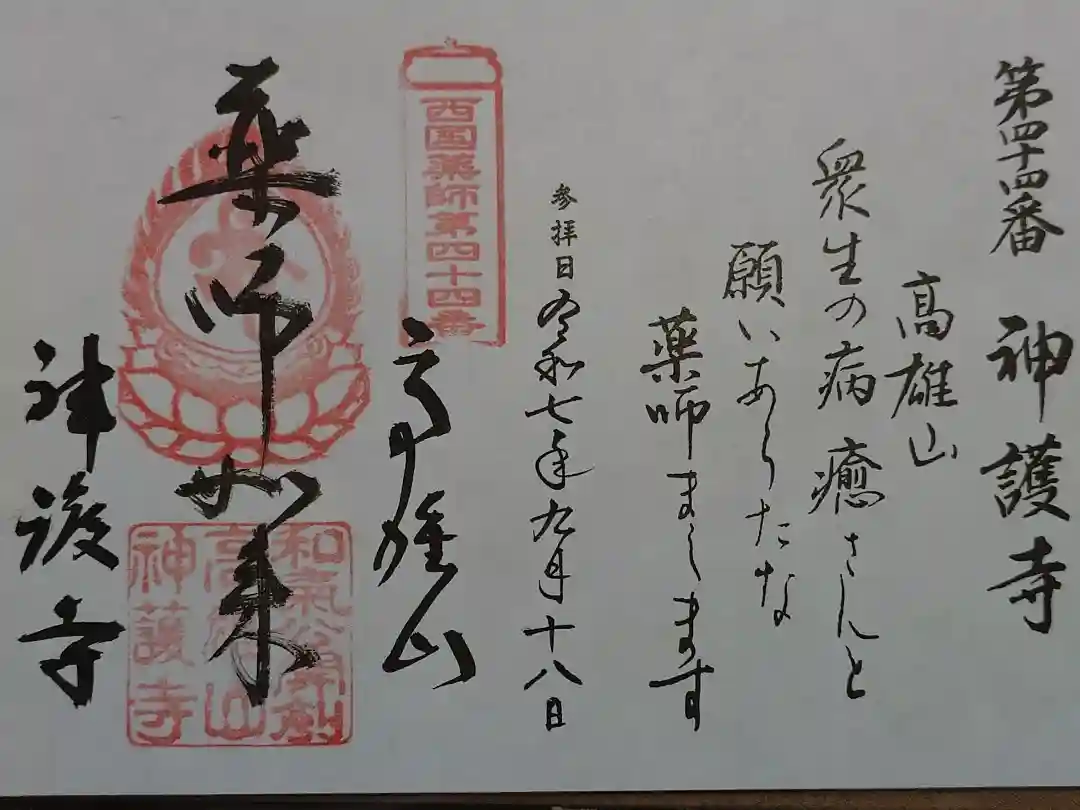 第四十四番 神護寺
高雄山
衆生の病癒さんと
願いあらたな
薬師まします
参拝日 令和七年九月十八日
西国薬師第四十四番
高雄山
薬師如来
神護寺
和氣公創
高雄山
神護寺